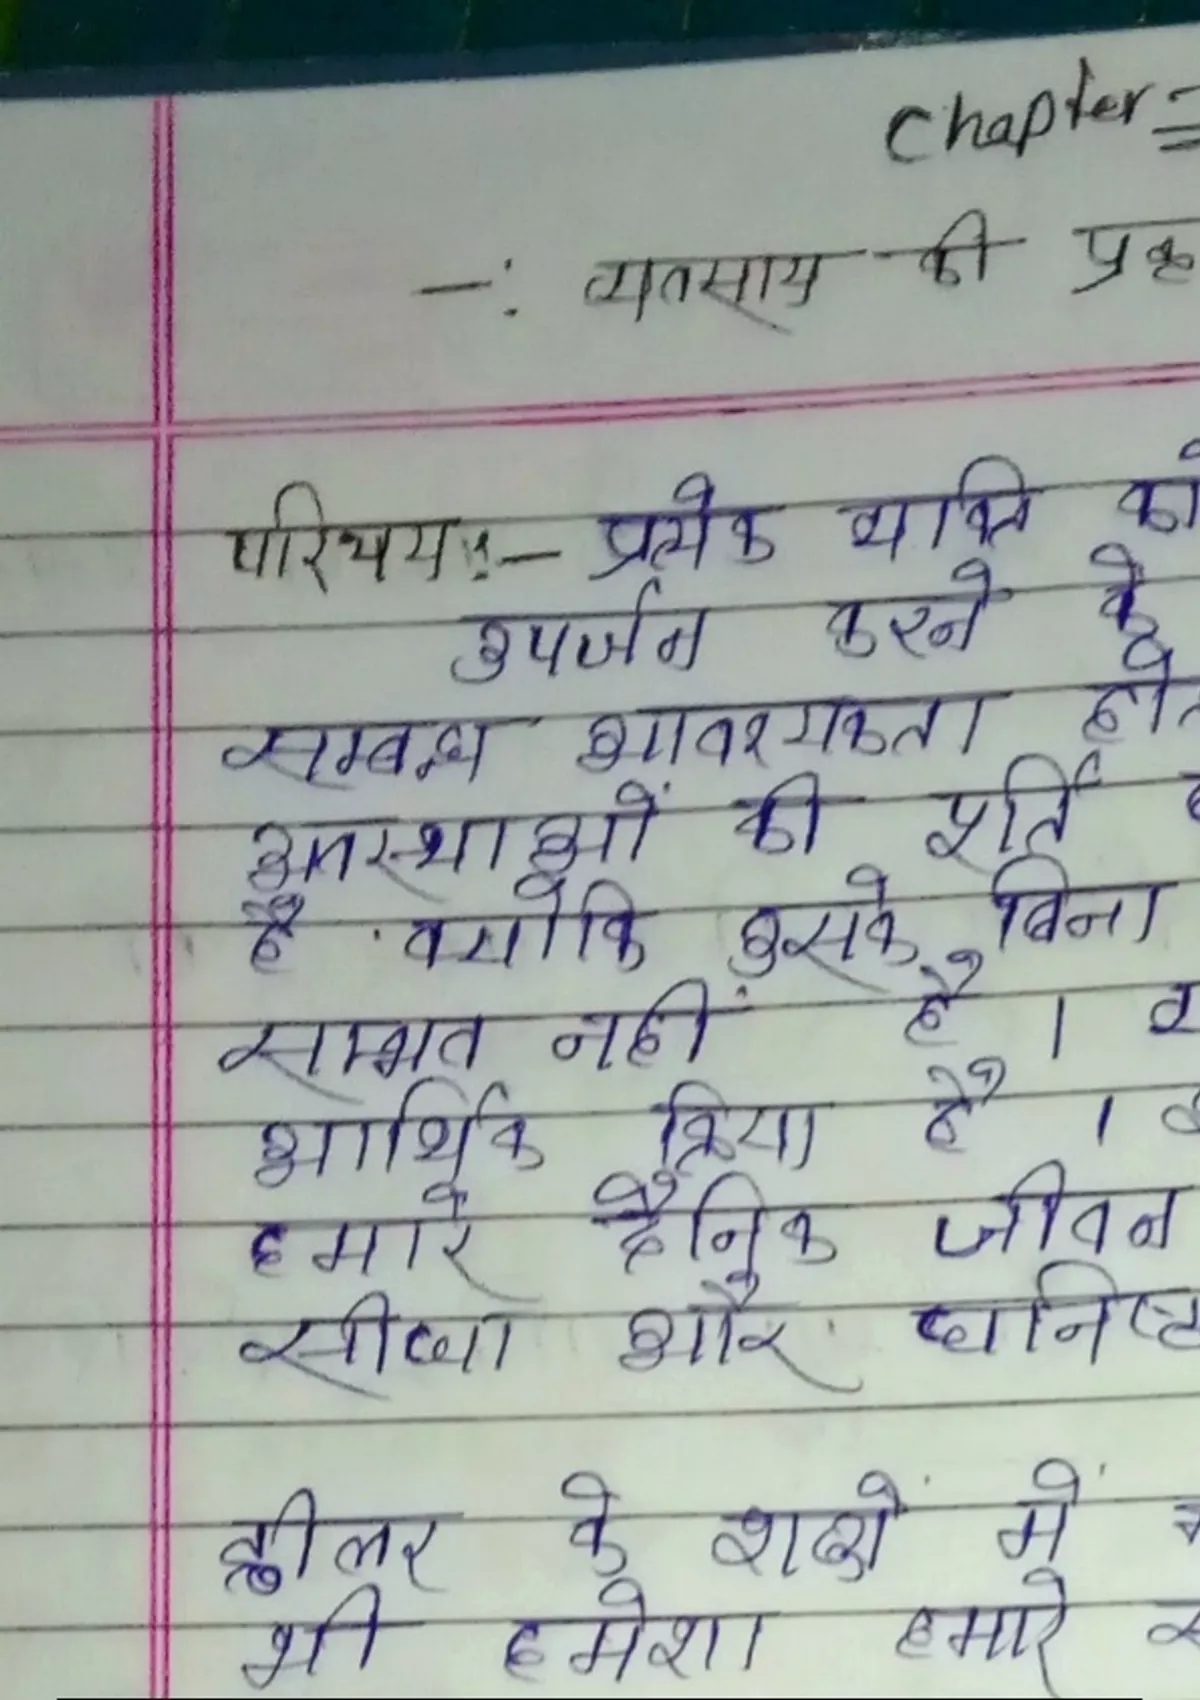 Chapter =
-: व्यवसाय की प्रकृ
परिचय :- प्रत्येक व्यक्ति को
उपर्जन करने के
सम्बन्ध आवश्यकता होत
अवस्थाओं की पूर्ति
है क्योंकि इसके बिना
सम्भव नहीं है ।
आर्थिक क्रिया है ।
हमारे दैनिक जीवन
सीधा और घनिष्ट
व्हीलर के शब्दों में
भी हमेशा हमारे स